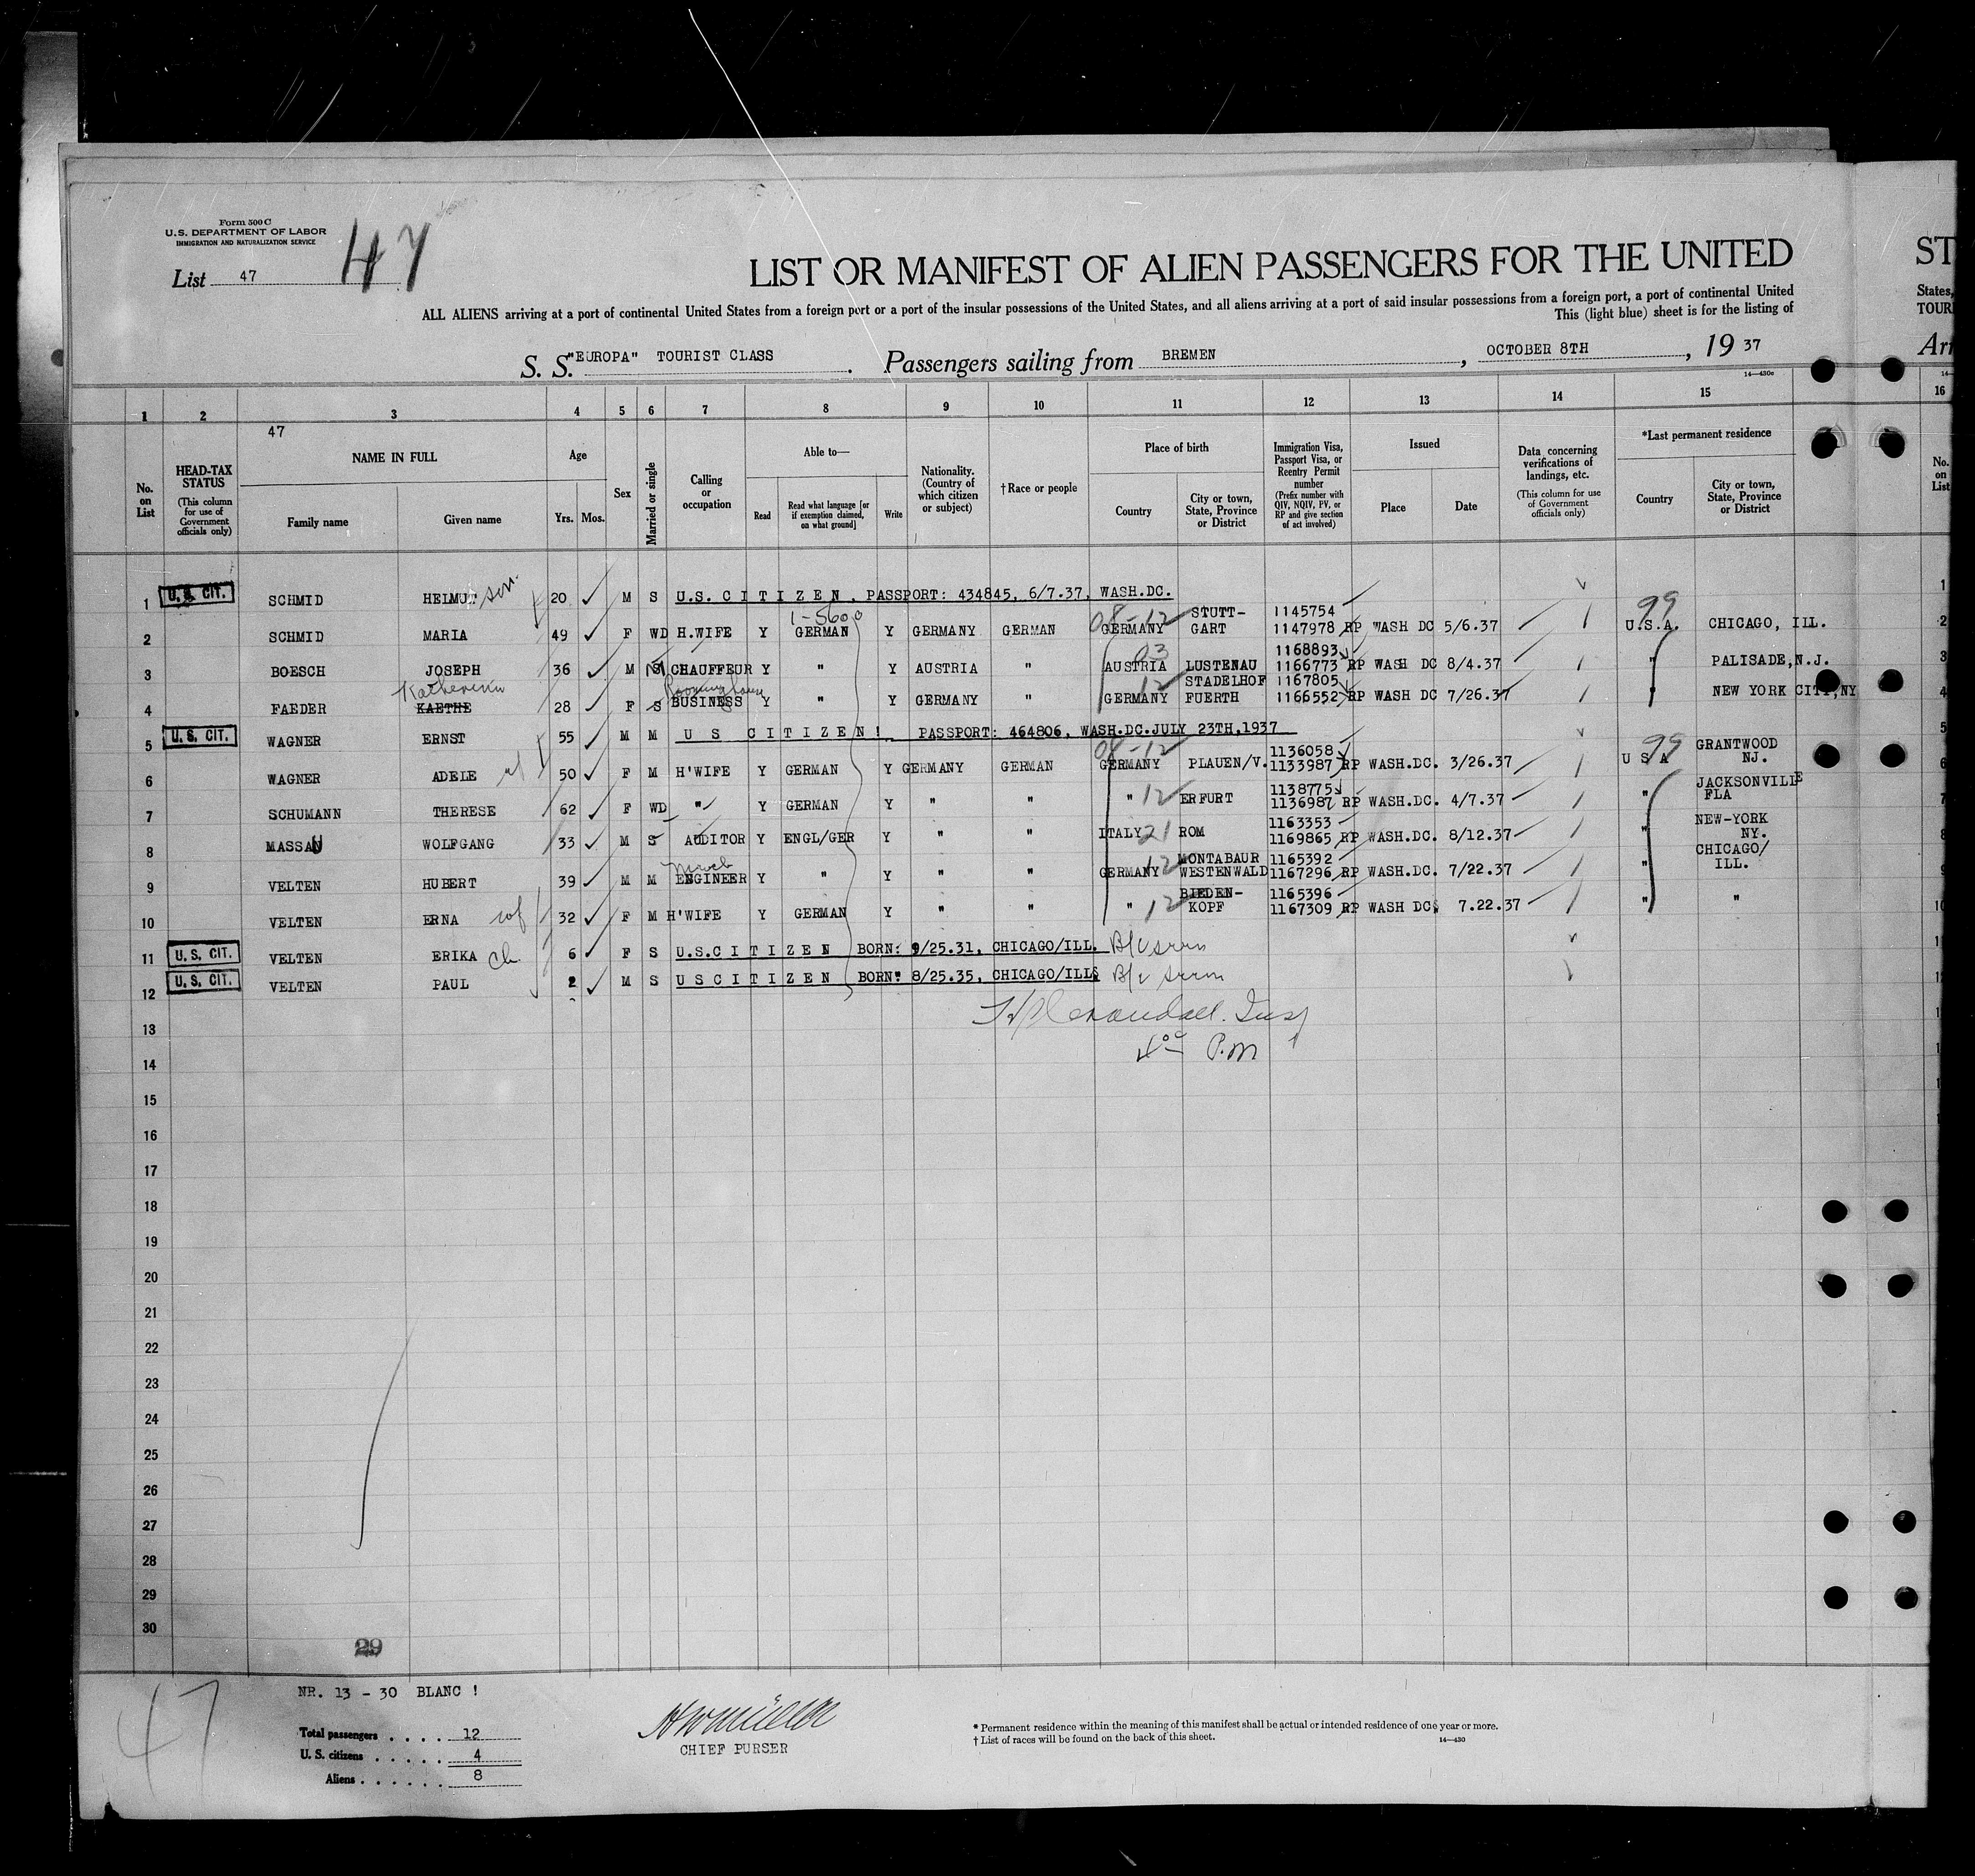 Form 500 C
U.S. DEPARTMENT OF LABOR
IMMIGRATION AND NATURALIZATION SERVICE
List 47
47
LIST OR MANIFEST OF ALIEN PASSENGERS FOR THE UNITED
ST
ALL ALIENS arriving at a port of continental United States from a foreign port or a port of the insular possessions of the United States, and all aliens arriving at a port of said insular possessions from a foreign port, a port of continental United
States,
This (light blue) sheet is for the listing of
TOUR
S. S. "EUROPA" TOURIST CLASS . Passengers sailing from BREMEN , OCTOBER 8TH , 19 37
Arr
14—430c
14—
1 2 3 4 5 6 7 8 9 10 11 12 13 14 15 16
47
No. on List
HEAD-TAX STATUS (This column for use of Government officials only)
NAME IN FULL
Family name Given name
Age
Yrs. Mos.
Sex
Married or single
Calling or occupation
Able to—
Read Read what language [or if exemption claimed, on what ground] Write
Nationality. (Country of which citizen or subject)
†Race or people
Place of birth
Country City or town, State, Province or District
Immigration Visa, Passport Visa, or Reentry Permit number (Prefix number with QIV, NQIV, PV, or RP and give section of act involved)
Issued
Place Date
Data concerning verifications of landings, etc. (This column for use of Government officials only)
*Last permanent residence
Country City or town, State, Province or District
No. on List
1 U.S. CIT. SCHMID HELMUT son 20 M S U.S. CITIZEN. PASSPORT: 434845, 6/7.37, WASH.DC. 1
1-5600 08-12 STUTT- 1145754 99
2 SCHMID MARIA 49 F WD H.WIFE Y GERMAN Y GERMANY GERMAN GERMANY GART 1147978 RP WASH DC 5/6.37 U.S.A. CHICAGO, ILL. 2
03 1168893
3 BOESCH JOSEPH 36 M S M CHAUFFEUR Y " Y AUSTRIA " AUSTRIA LUSTENAU 1166773 RP WASH DC 8/4.37 " PALISADE,N.J. 3
Katherina Rooming house 12 STADELHOF 1167805
4 FAEDER KAETHE 28 F S BUSINESS Y " Y GERMANY " GERMANY FUERTH 1166552 RP WASH DC 7/26.37 " NEW YORK CITY,NY 4
5 U.S. CIT. WAGNER ERNST 55 M M US CITIZEN! PASSPORT: 464806, WASH.DC.JULY 23TH,1937 5
08-12 1136058 99 GRANTWOOD
6 WAGNER ADELE wf 50 F M H'WIFE Y GERMAN Y GERMANY GERMAN GERMANY PLAUEN/V. 1133987 RP WASH.DC. 3/26.37 U S A NJ. 6
1138775 JACKSONVILLE
7 SCHUMANN THERESE 62 F WD " Y GERMAN Y " " " 12 ERFURT 1136987 RP WASH.DC. 4/7.37 " FLA 7
1163353 NEW-YORK
8 MASSAU WOLFGANG 33 M S AUDITOR Y ENGL/GER Y " " ITALY 21 ROM 1169865 RP WASH.DC. 8/12.37 " NY. 8
Mech 12 MONTABAUR 1165392 CHICAGO/
9 VELTEN HUBERT 39 M M ENGINEER Y " Y " " GERMANY WESTENWALD 1167296 RP WASH.DC. 7/22.37 " ILL. 9
BIEDEN- 1165396
10 VELTEN ERNA wf 32 F M H'WIFE Y GERMAN Y " " " 12 KOPF 1167309 RP WASH DC. 7.22.37 " " 10
11 U.S. CIT. VELTEN ERIKA ch. 6 F S U.S.CITIZEN BORN: 9/25.31, CHICAGO/ILL. B/c seen
12 U.S. CIT. VELTEN PAUL 2 M S USCITIZEN BORN: 8/25.35, CHICAGO/ILL. B/c seen
13
4 00 P.M
14
15
16
17
18
19
20
21
22
23
24
25
26
27
28
29
30
29
47
NR. 13 - 30 BLANC !
Total passengers . . . . 12
U. S. citizens . . . . . 4
Aliens . . . . . . 8
CHIEF PURSER
* Permanent residence within the meaning of this manifest shall be actual or intended residence of one year or more.
† List of races will be found on the back of this sheet.
14—430